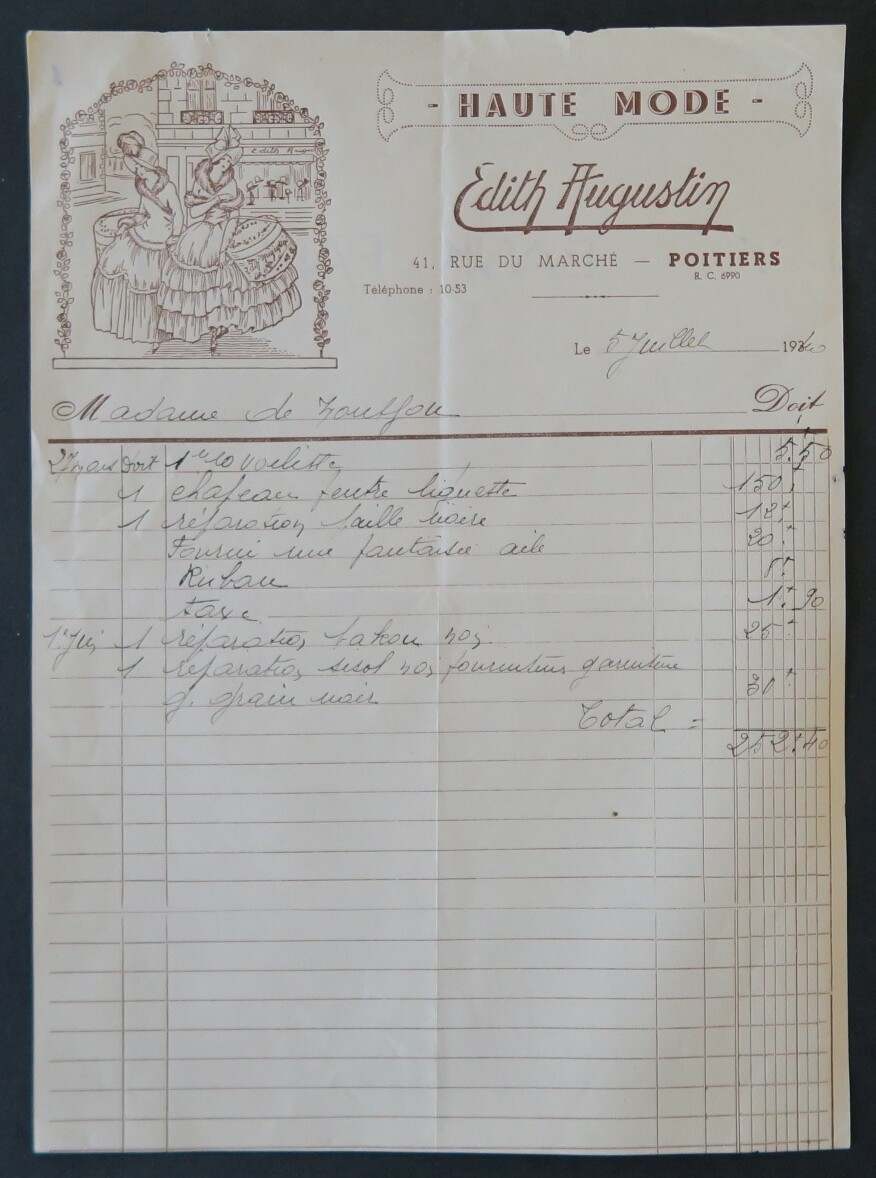 - HAUTE MODE -
Edith Augustin
41, RUE DU MARCHÉ — POITIERS
R. C. 6990
Téléphone : 10-53
Le 5 Juillet 1940
Madame de Doit
27 mars Doit 1m10 voilette 5.50
1 chapeau feutre 150
1 réparation paille noire 12
Fourni une fantaisie aile 20
Ruban 8
taxe 1.90
1r Juin 1 réparation 25
1 réparation garniture
g. grain noir 30
Total = 252.40